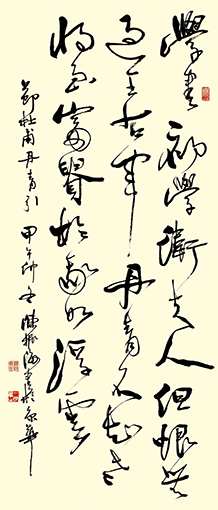 學書初學衛夫人但恨無
過王右軍丹青不知老
將至富貴於我如浮雲
節杜甫丹青引 甲午 書於京華